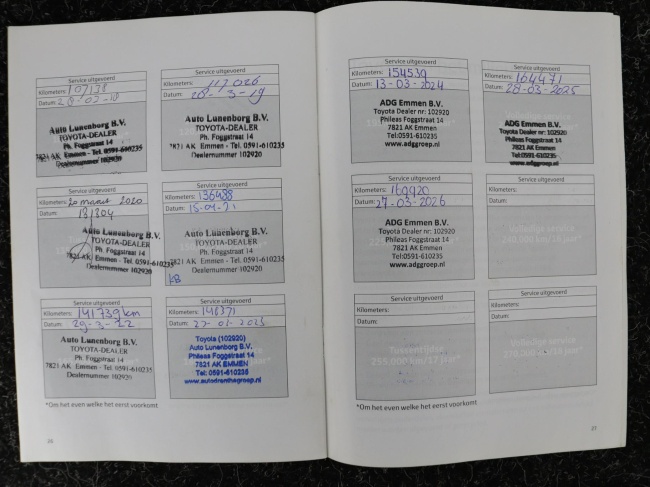 Service uitgevoerd
Kilometers: 107138
Datum: 28-03-18
Auto Lunenborg B.V.
TOYOTA-DEALER
Ph. Foggstraat 14
7821 AK Emmen - Tel. 0591-610235
Dealernummer 102920
Service uitgevoerd
Kilometers: 117026
Datum: 28-3-19
Auto Lunenborg B.V.
TOYOTA-DEALER
Ph. Foggstraat 14
7821 AK Emmen - Tel. 0591-610235
Dealernummer 102920
Service uitgevoerd
Kilometers: 20 maart 2020
Datum: 131304
Auto Lunenborg B.V.
TOYOTA-DEALER
Ph. Foggstraat 14
7821 AK Emmen - Tel. 0591-610235
Dealernummer 102920
Service uitgevoerd
Kilometers: 136488
Datum: 15-04-21
Auto Lunenborg B.V.
TOYOTA-DEALER
Ph. Foggstraat 14
7821 AK Emmen - Tel. 0591-610235
Dealernummer 102920
KB
Service uitgevoerd
Kilometers: 141739km
Datum: 29-3-22
Auto Lunenborg B.V.
TOYOTA-DEALER
Ph. Foggstraat 14
7821 AK Emmen - Tel. 0591-610235
Dealernummer 102920
Service uitgevoerd
Kilometers: 146371
Datum:
Toyota (102920)
Auto Lunenborg B.V.
Phileas Foggstraat 14
7821 AK EMMEN
Tel: 0591-610235
www.autodrenthegroep.nl
*Om het even welke het eerst voorkomt
26
Service uitgevoerd
Kilometers: 154539
Datum: 13-03-2024
ADG Emmen B.V.
Toyota Dealer nr: 102920
Phileas Foggstraat 14
7821 AK Emmen
Tel:0591-610235
www.adggroep.nl
Service uitgevoerd
Kilometers: 164471
Datum: 28-03-2025
ADG Emmen B.V.
Toyota Dealer nr: 102920
Phileas Foggstraat 14
7821 AK Emmen
Tel:0591-610235
www.adggroep.nl
Service uitgevoerd
Kilometers: 169920
Datum: 27-03-2026
ADG Emmen B.V.
Toyota Dealer nr: 102920
Phileas Foggstraat 14
7821 AK Emmen
Tel:0591-610235
www.adggroep.nl
Service uitgevoerd
Kilometers:
Datum:
Volledige service
240.000 km/16 jaar*
Service uitgevoerd
Kilometers:
Datum:
Tussentijdse
255.000 km/17 jaar*
Service uitgevoerd
Kilometers:
Datum:
Volledige service
270.000 km/18 jaar*
*Om het even welke het eerst voorkomt
27